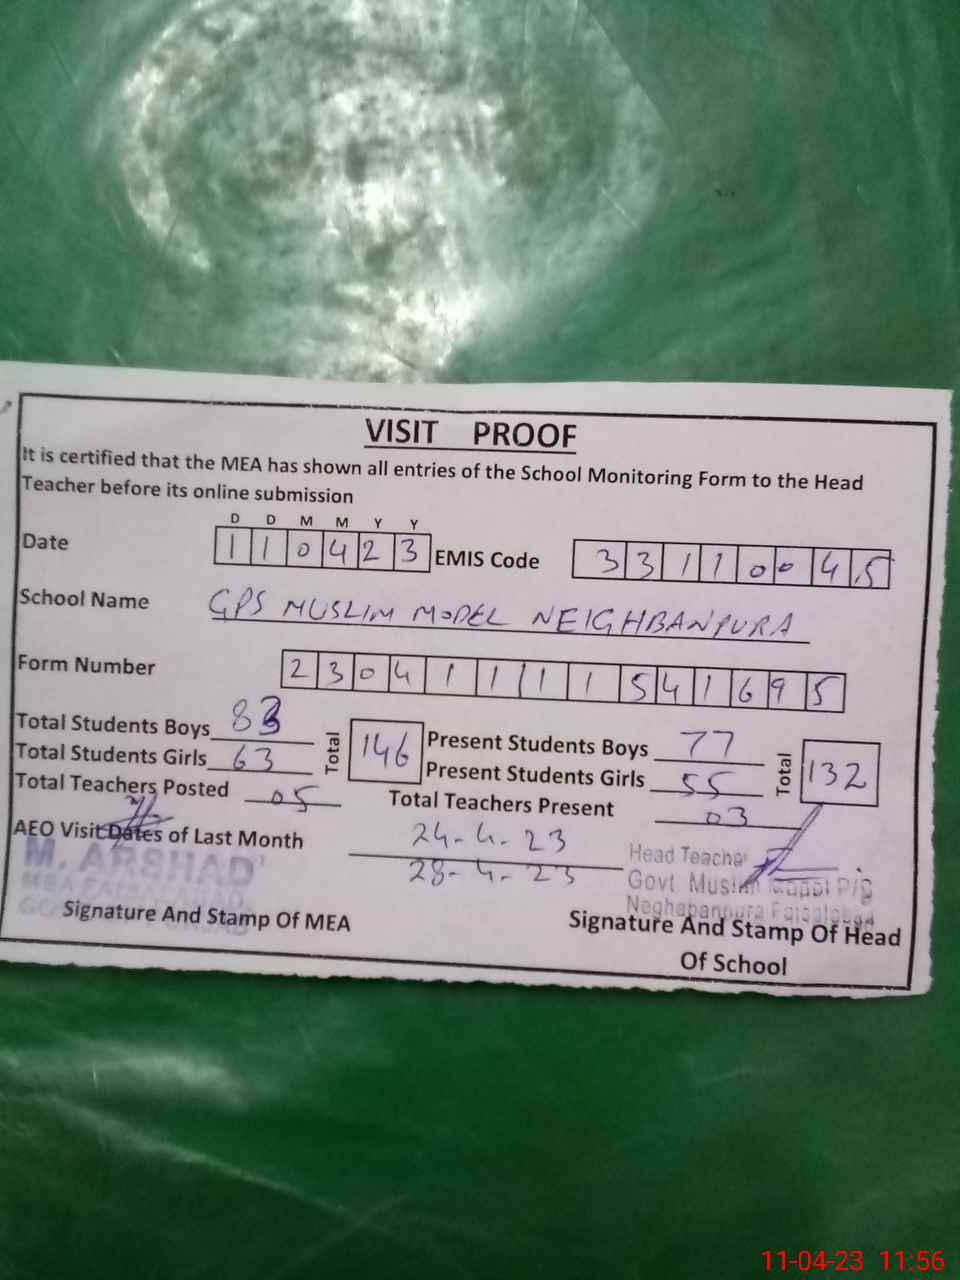 VISIT PROOF
It is certified that the MEA has shown all entries of the School Monitoring Form to the Head
Teacher before its online submission
D D M M Y Y
Date 1 1 0 4 2 3 EMIS Code 3 3 1 1 0 0 4 5
School Name GPS MUSLIM MODEL NEIGHBANPURA
Form Number 2 3 0 4 1 1 1 1 5 4 1 6 9 5
Total Students Boys 83 Total 146 Present Students Boys 77 Total 132
Total Students Girls 63 Present Students Girls 55
Total Teachers Posted 05 Total Teachers Present 03
AEO Visit Dates of Last Month 24-4-23
28-4-23
M. ARSHAD
MEA FAISALABAD
Head Teacher
Govt. Muslim Model P/S
Neghabanpura Faisalabad
Signature And Stamp Of MEA
Signature And Stamp Of Head
Of School
11-04-23 11:56